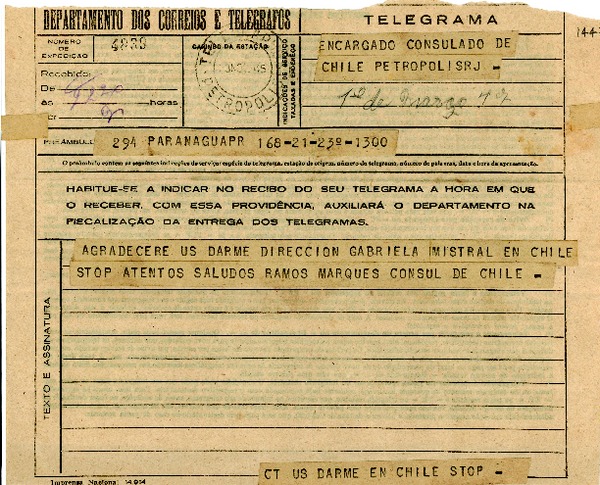 DEPARTAMENTO DOS CORREIOS E TELÉGRAFOS
TELEGRAMA
144
NÚMERO DE EXPEDIÇÃO
CARIMBO DA ESTAÇÃO
INDICAÇÕES DE SERVIÇO TAXADAS E ENDEREÇO
ENCARGADO CONSULADO DE
CHILE PETROPOLISRJ -
PETROPOLI
Recebido:
De
às horas
1º de Março
PREÂMBULO
294 PARANAGUAPR 168-21-23º-1300
O preâmbulo contém as seguintes indicações de serviço: espécie do telegrama, estação de origem, número do telegrama, número de palavras, data e hora da apresentação.
HABITUE-SE A INDICAR NO RECIBO DO SEU TELEGRAMA A HORA EM QUE
O RECEBER. COM ESSA PROVIDÊNCIA, AUXILIARÁ O DEPARTAMENTO NA
FISCALIZAÇÃO DA ENTREGA DOS TELEGRAMAS.
TEXTO E ASSINATURA
AGRADECERE US DARME DIRECCION GABRIELA MISTRAL EN CHILE
STOP ATENTOS SALUDOS RAMOS MARQUES CONSUL DE CHILE -
CT US DARME EN CHILE STOP -
Imprensa Nacional